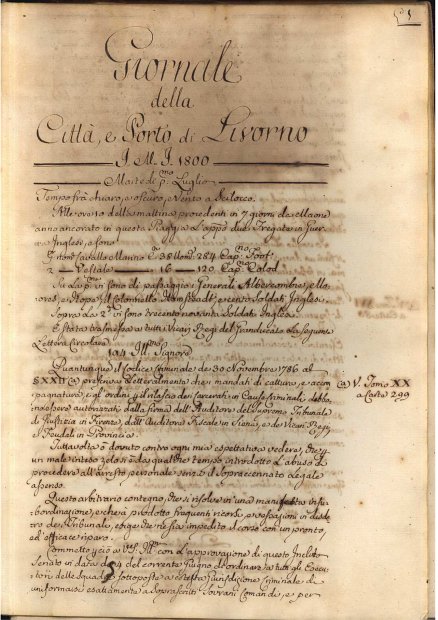 Giornale
della
Città, e Porto di Livorno
J. M. J. 1800
Martedì p.mo Luglio
Tempo frà chiaro, e oscuro, Vento a Scilocco.
Alle ore 10 della mattina procedenti in 7 giorni da
anno ancorato in questa Spiaggia Lapp.e due Fregate in Guer
ra Inglesi, e sono
C. 38 Uom. 284 Cap.no
2 — Vestale — 16 — 120 Cap.no
Su La p.a vi sono di passaggio i Generali Albercombie,
ores, e Hope, il Colonnello e cento Soldati Inglesi.
Sopra La 2.a vi sono trecento novanta Soldati Inglesi.
È stata trasmessa a tutti i Vicari Regi del Granducato la seguen.
Lettera Circolare
Ill.mo Signore
Quantunque il Codice Criminale de 30 Novembre 1786 al
§XXII (a) prescriva letteralmente che i mandati di catture, e accom
pagnature, e gli ordini di rilascio dei Carcerati in Cause Criminali debba
no essere autorizzati dalla firma dell'Auditore del Supremo Tribunale
di Giustizia in Firenze, dall'Auditore Fiscale in Siena, e de Vicari Regi,
e Feudali in Provincia.
(a) V. Tomo XX
a Carte 299
Tuttavolta ò dovuto contro ogni mia espettativa vedere, che p
un male inteso zelo si è da qualche tempo introdotto l'abuso di
procedere all'arresto personale senza il Sopraccennato Legale
Questo arbitrario contegno, che si risolve in una manifesta insu
bordinazione, e che à prodotto frequenti ricorsi, e in
ro dei Tribunali, esige che ne sia impedito il corso con un pronto,
ed efficace riparo.
Commetto perciò a VS. Ill.ma con l'approvazione di questo Inclito
Senato in data de 4 del corrente Giugno di ordinare a tutti gli Esecu
tori delle Squadre sottoposte a cotesta giurisdizione Criminale di
uniformarsi esattamente a Soprascritti Sovrani Comandi, e per